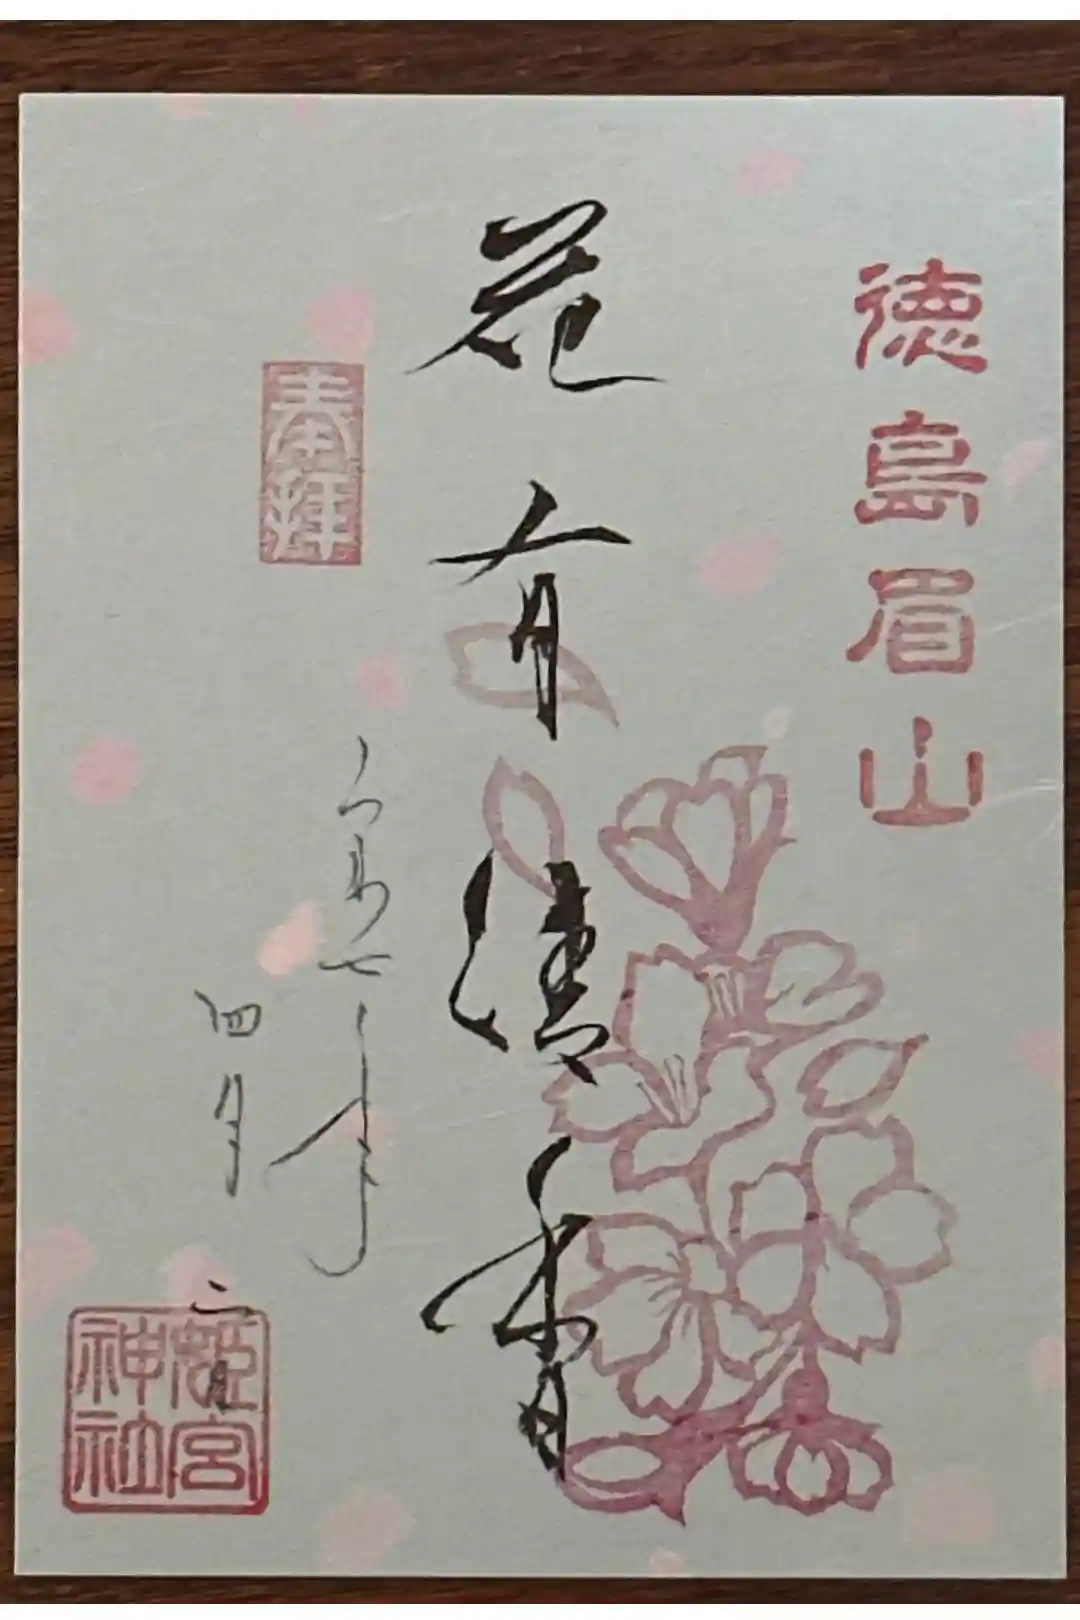 徳島眉山
花有清香
奉拝
令和七年
四月二日
姫宮
神社